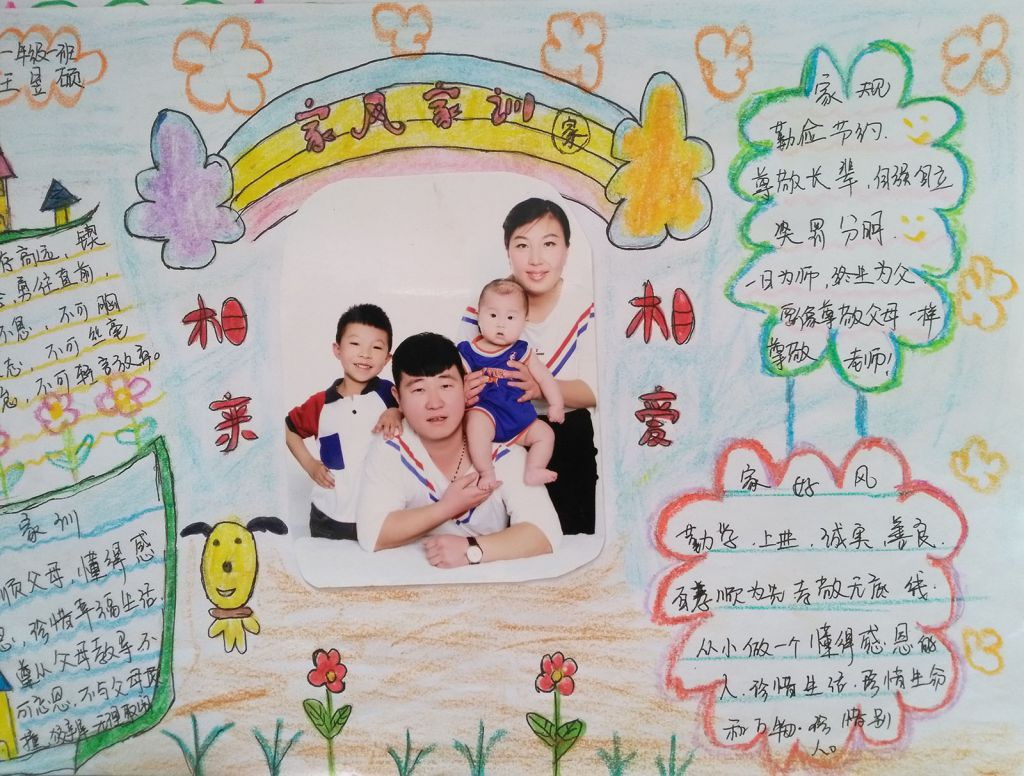 一年级一班
王昱硕
家风家训
家
相亲
相爱
存高远，锲
勇往直前，
不息，不可胸
志，不可丝毫
不可轻言放弃。
家训
顺父母，懂得感
恩，珍惜幸福生活，
遵从父母教导不
可忘恩，不与父母顶
撞
家规
勤俭节约.
尊敬长辈，自强自立
奖罚分明.
一日为师，终生为父
要像尊敬父母一样
尊敬老师！
家好风
勤学.上进.诚实.善良.
百善顺为先孝敬无底线.
从小做一个懂得感恩的
人.珍惜生活.珍惜生命
和万物.珍惜别
人。